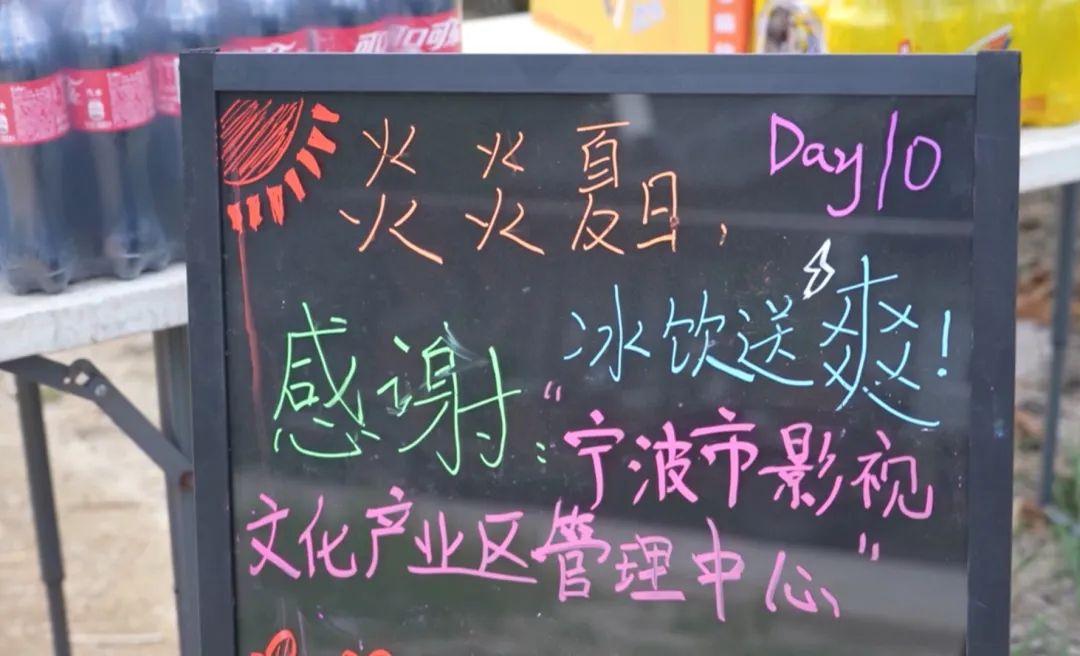 可口可
Day10
炎炎夏日，
冰饮送爽！
感谢：“宁波市影视
文化产业区管理中心”